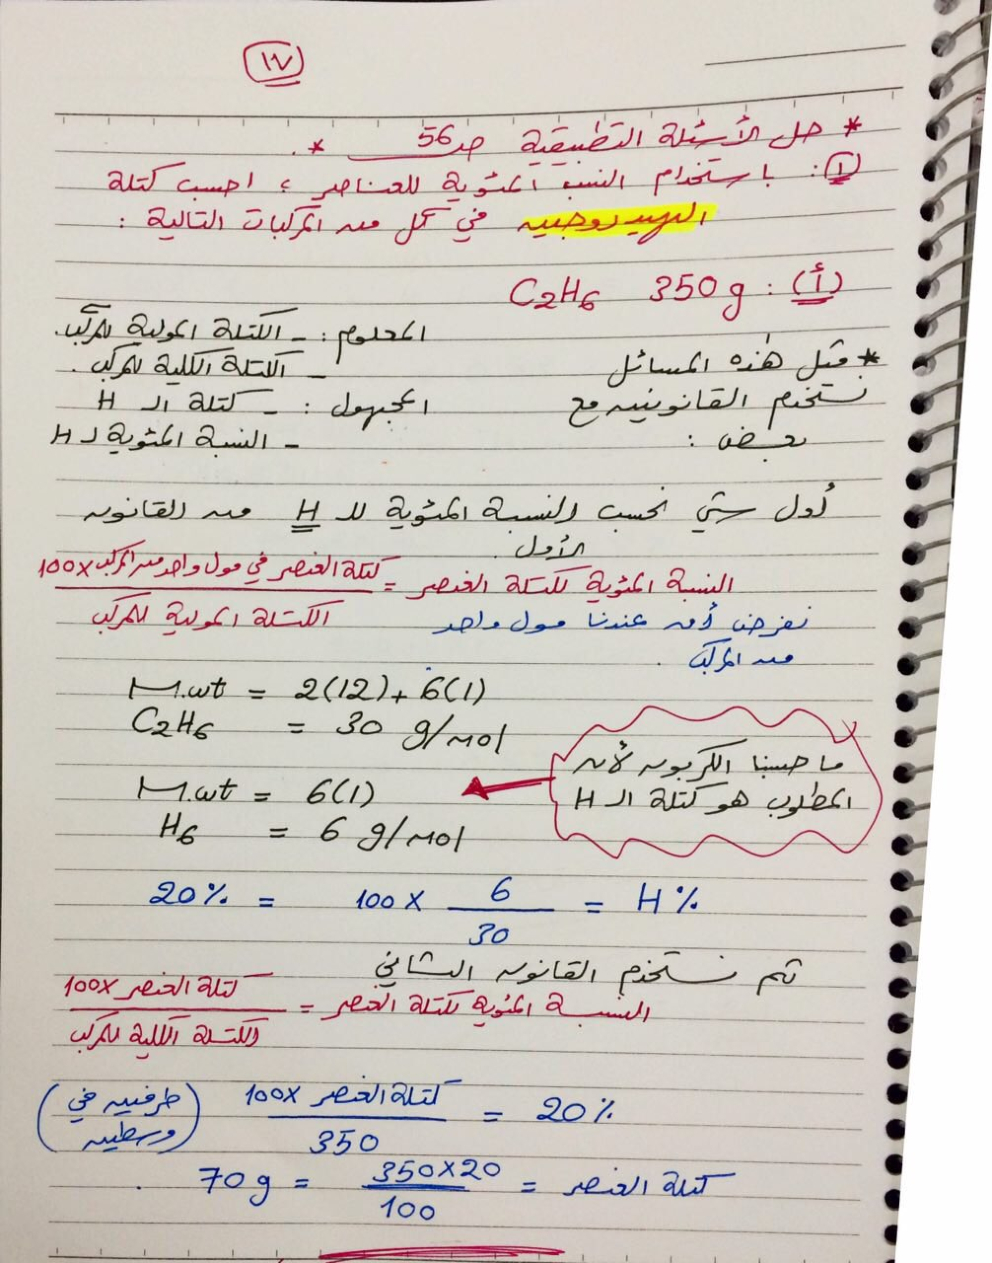 ١٧
* حل الأسئلة التطبيقية صـ 56 *
①: باستخدام النسب المئوية للعناصر ؛ احسب كتلة
الهيدروجين في كل من المركبات التالية :
(أ) : C2H6 350g
المعلوم : - الكتلة المولية للمركب.
- الكتلة الكلية للمركب .
المجهول : - كتلة الـ H
- النسبة المئوية لـ H
* مثل هذه المسائل
نستخدم القانونين مع
بعض :
أول شي نحسب النسبة المئوية للـ H من القانون
الأول .
النسبة المئوية لكتلة العنصر = كتلة العنصر في مول واحد من المركب x 100
الكتلة المولية للمركب
نفرض أن عندنا مول واحد
من المركب .
M.wt = 2(12) + 6(1)
C2H6 = 30 g/mol
M.wt = 6(1)
H6 = 6 g/mol
ما حسبنا الكربون لأن
المطلوب هو كتلة الـ H
20% = 100 x 6 = H%
30
ثم نستخدم القانون الثاني
النسبة المئوية لكتلة العنصر = كتلة العنصر x 100
الكتلة الكلية للمركب
20% = كتلة العنصر x 100
350
(طرفين في
وسطين)
كتلة العنصر = 350x20 = 70g .
100